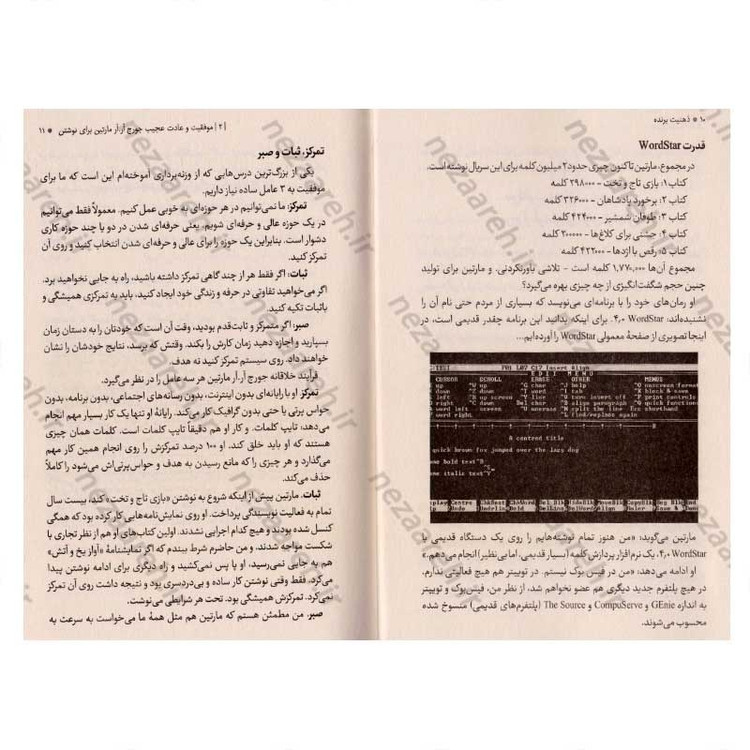 ۱۰ * ذهنیت برنده
قدرت WordStar
در مجموع، مارتین تاکنون چیزی حدود ۲ میلیون کلمه برای این سریال نوشته است.
کتاب ۱: بازی تاج و تخت – ۲۹۸۰۰۰ کلمه
کتاب ۲: برخورد پادشاهان – ۳۲۶۰۰۰ کلمه
کتاب ۳: طوفان شمشیر – ۴۲۴۰۰۰ کلمه
کتاب ۴: جشنی برای کلاغ‌ها – ۳۰۰۰۰۰ کلمه
کتاب ۵: رقص با اژدها – ۴۲۲۰۰۰ کلمه
مجموع آن‌ها ۱,۷۷۰,۰۰۰ کلمه است – تلاشی باورنکردنی. و مارتین برای تولید
چنین حجم شگفت‌انگیزی از چه چیزی بهره می‌گیرد؟
او رمان‌های خود را با برنامه‌ای می‌نویسد که بسیاری از مردم حتی نام آن را
نشنیده‌اند: WordStar ۴٫۰. برای اینکه بدانید این برنامه چقدر قدیمی است، در
اینجا تصویری از صفحهٔ معمولی WordStar را آورده‌ایم...
Insert Align
EDIT MENU
CURSOR SCROLL ERASE OTHER MENUS
A centred title
quick brown fox jumped over the lazy dog
ome bold text^B
ome italic text^Y
مارتین می‌گوید: «من هنوز تمام نوشته‌هایم را روی یک دستگاه قدیمی با
WordStar ۴٫۰، یک نرم‌افزار پردازش کلمه (بسیار قدیمی، اما بی‌نظیر) انجام می‌دهم.»
او ادامه می‌دهد: «من در فیس بوک نیستم. در توییتر هم هیچ فعالیتی ندارم.
در هیچ پلتفرم جدید دیگری هم عضو نخواهم شد. از نظر من، فیس‌بوک و توییتر
به اندازه GEnie و CompuServe و The Source (پلتفرم‌های قدیمی) منسوخ شده
محسوب می‌شوند.
|۲| موفقیت و عادت عجیب جورج آر.آر مارتین برای نوشتن * ۱۱
تمرکز، ثبات و صبر
یکی از بزرگ‌ترین درس‌هایی که از وزنه‌برداری آموخته‌ام این است که ما برای
موفقیت به ۳ عامل ساده نیاز داریم.
تمرکز: ما نمی‌توانیم در هر حوزه‌ای به خوبی عمل کنیم. معمولاً فقط می‌توانیم
در یک حوزه عالی و حرفه‌ای شویم. یعنی حرفه‌ای شدن در دو یا چند حوزه کاری
دشوار است. بنابراین یک حوزه را برای عالی و حرفه‌ای شدن انتخاب کنید و روی آن
تمرکز کنید.
ثبات: اگر فقط هر از چند گاهی تمرکز داشته باشید، راه به جایی نخواهید برد.
اگر می‌خواهید تفاوتی در حرفه و زندگی خود ایجاد کنید، باید به تمرکزی همیشگی و
باثبات تکیه کنید.
صبر: اگر متمرکز و ثابت‌قدم بودید، وقت آن است که خودتان را به دستان زمان
بسپارید و اجازه دهید زمان کارش را بکند. وقتش که برسد، نتایج خودشان را نشان
خواهند داد. روی سیستم تمرکز کنید نه هدف.
فرآیند خلاقانه جورج آر.آر مارتین هر سه عامل را در نظر می‌گیرد.
تمرکز او با رایانه‌ای بدون اینترنت، بدون رسانه‌های اجتماعی، بدون برنامه، بدون
حواس پرتی یا حتی بدون گرافیک کار می‌کند. رایانهٔ او تنها یک کار بسیار مهم انجام
می‌دهد: تایپ کلمات. و کار او هم دقیقاً تایپ کلمات است. کلمات همان چیزی
هستند که او باید خلق کند. او ۱۰۰ درصد تمرکزش را روی انجام همین کار مهم
می‌گذارد و هر چیزی را که مانع رسیدن به هدف و حواس‌پرتی‌اش می‌شود را کاملاً
حذف می‌کند.
ثبات. مارتین پیش از اینکه شروع به نوشتن «بازی تاج و تخت» کند، بیست سال
تمام به فعالیت نویسندگی پرداخت. او روی نمایش‌نامه‌هایی کار کرده بود که همگی
کنسل شده بودند و هیچ کدام اجرایی نشدند. اولین کتاب‌های او هم از نظر تجاری با
شکست مواجه شدند. و من حاضرم شرط ببندم که اگر نمایشنامهٔ «آواز یخ و آتش»
هم به جایی نمی‌رسید، او پا پس نمی‌کشید و راه دیگری برای ادامه نوشتن پیدا
می‌کرد. فقط وقتی نوشتن کار ساده و بی‌دردسری بود و نتیجه داشت روی آن تمرکز
نمی‌کرد. تمرکزش همیشگی بود. تحت هر شرایطی می‌نوشت.
صبر. من مطمئن هستم که مارتین هم مثل همهٔ ما می‌خواست به سرعت به
nezaareh.ir